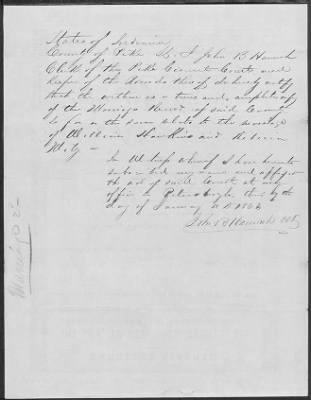 State of Indiana
County of Pike Sct I John B Hannah
Clerk of the Pike Circuit Court and
keeper of the Records thereof do hereby certify
that the within is a true and complete copy
of the Marriage Record of said County
so far as the same relates to the marriage
of William Hawkins and Rebecca
In Witness whereof I have hereunto
subscribed my name and affixed
the seal of said Court at my
office in Petersburgh this the
day of January A D
John B Hannah Clk
Marriage